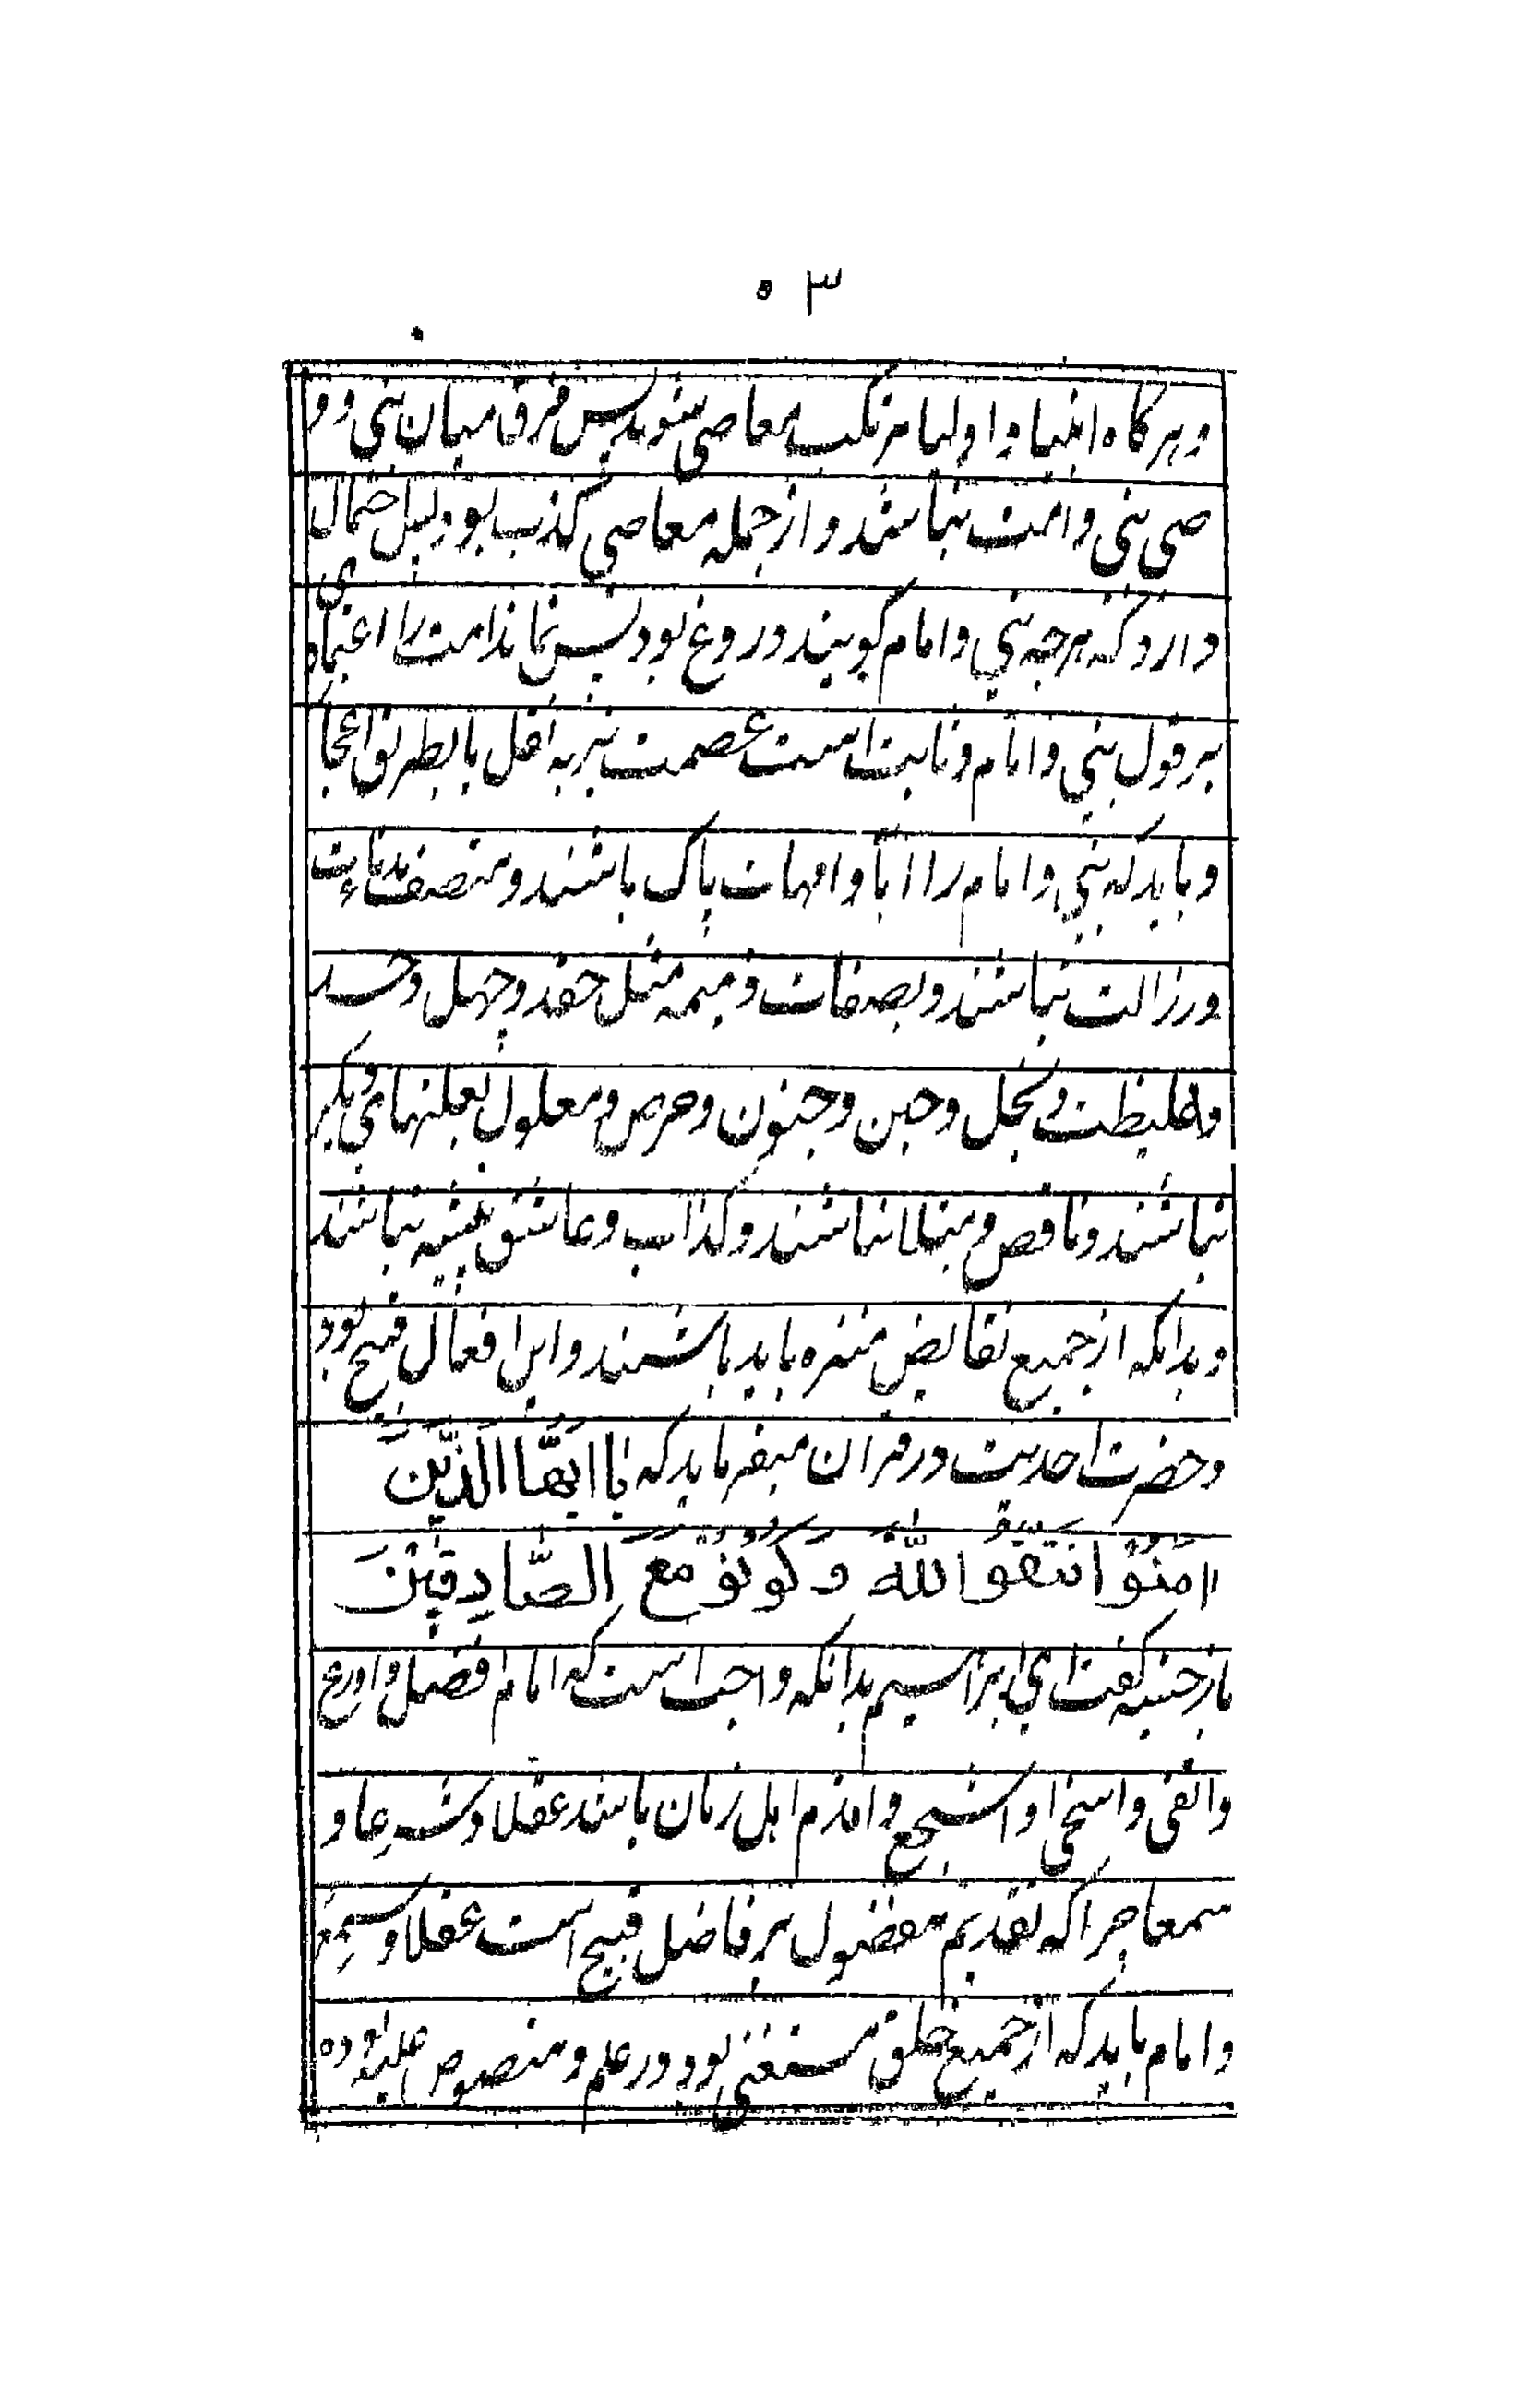 ۵۳
و هرکاه انبیا و اولیا مرتکب معاصی شوند پس فرق میان نبی و و
صی نبی و امت نباشد و از جمله معاصی کذب بود پس احتمال
دارد که هر چه نبی و امام کویند دروغ بود پس نماند امت را اعتمادی
بر قول نبی و امام و ثابت است عصمت نیز به اقل بابطریق اعجا
و باید که نبی و امام را ابا و امهات پاک باشند و متصف بدناءت
و رزالت نباشند و بصفات ذمیمه مثل حقد و جهل و حسد
و غلیظت و بخل و جبن و جنون و حرص و معلول بعلتهای دیکر
نباشند و ناقص و مبتلا نباشند و کذاب و عاشق پیشه نباشند
و بدانکه از جمیع نقایض منزه باید باشند و این افعال قبیح بود
و حضرت احدیت در قران میفرماید که یَا اَیُّهَا الَّذِیْنَ
اٰمَنُوْا اتَّقُوا اللّٰهَ وَ کُوْنُوْ مَعَ الصَّادِقِیْنَ
باز حسنیه کفت ای ابراهیم بدانکه واجب است که امام افضل و اورع
و اتقی و اسخی و اشجع و اقدم اهل زمان باشد عقلا و شرعا و
سمعا چرا که تقدیم مفضول بر فاضل قبیح است عقلا و سمعا
و امام باید که از جمیع خلق مستغنی بود در علم و منصوص علیه بوده